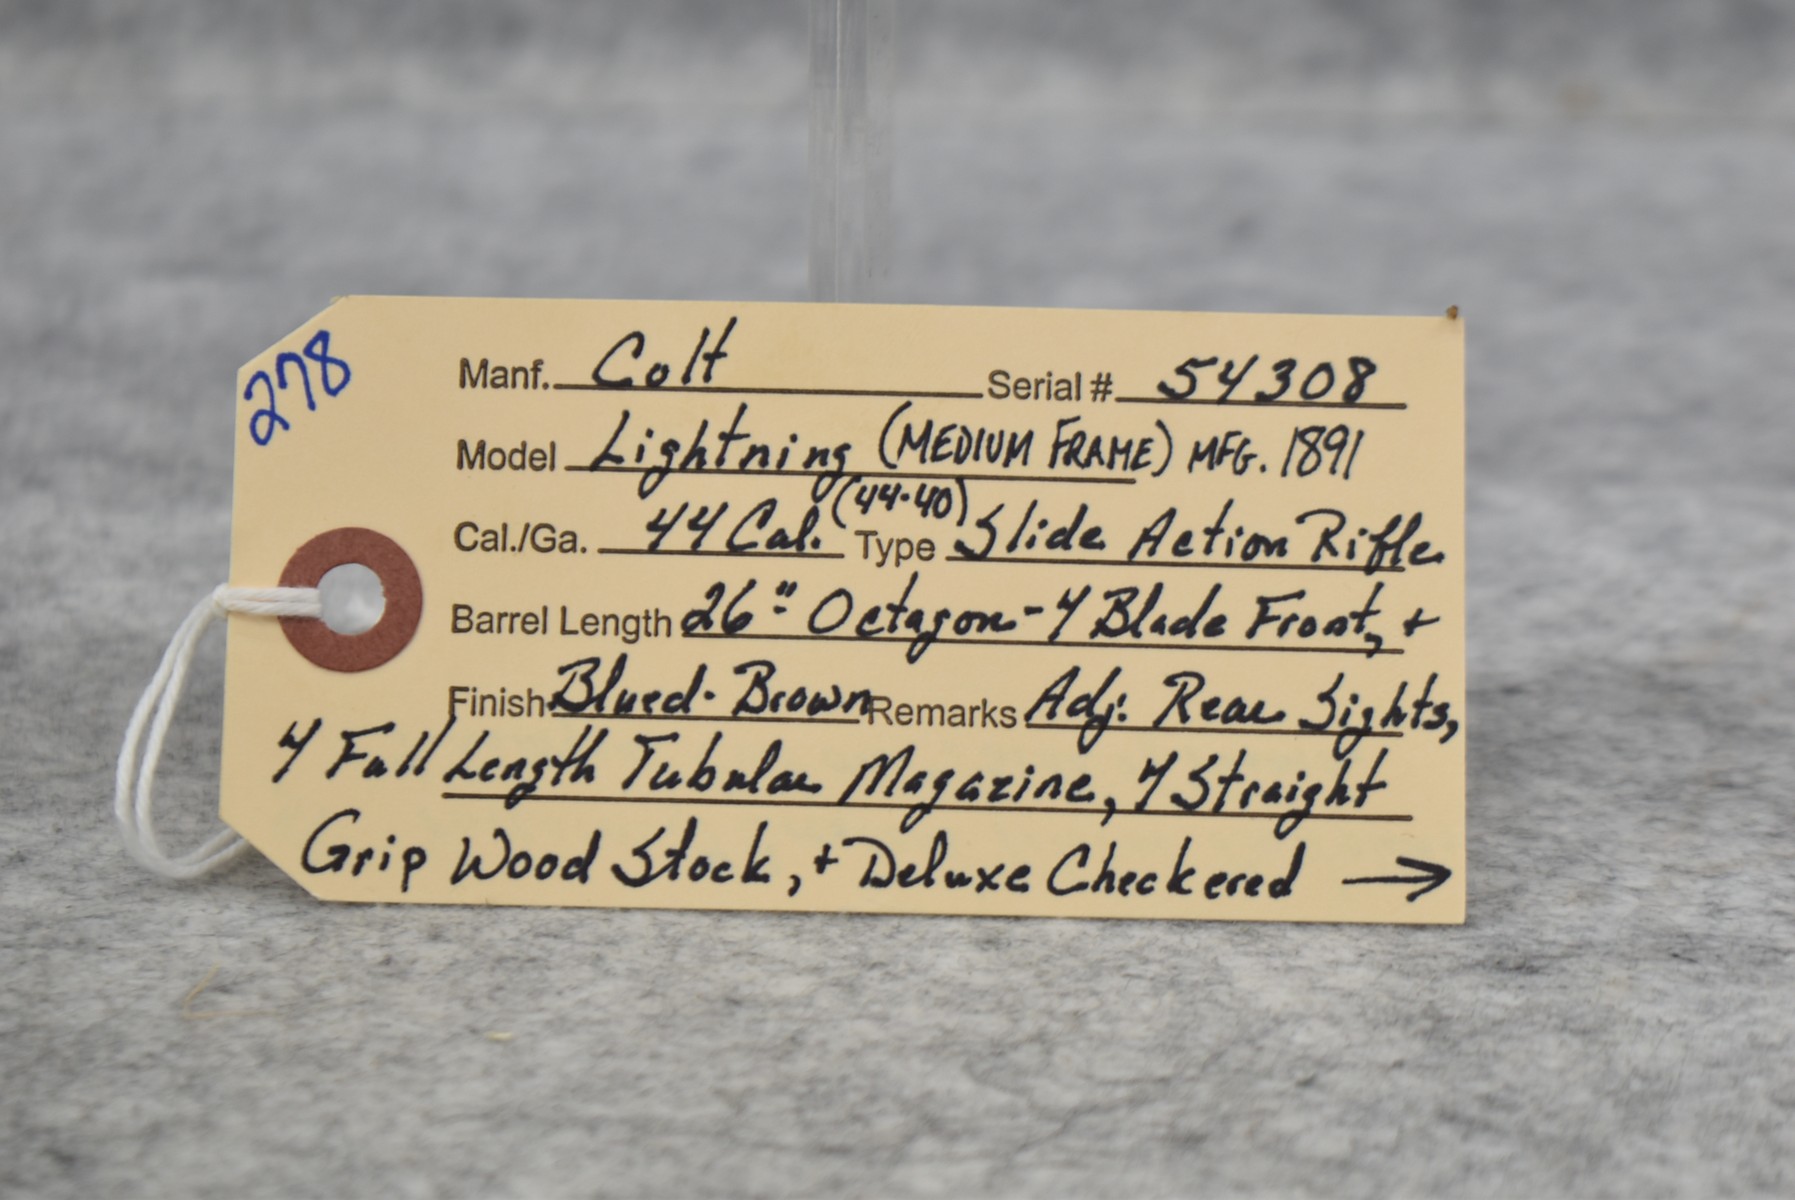 278
Manf. Colt Serial # 54308
Model Lightning (MEDIUM FRAME) MFG. 1891
Cal./Ga. 44 Cal. (44-40) Type Slide Action Rifle
Barrel Length 26" Octagon - Y Blade Front, +
Finish Blued-Brown Remarks Adj. Rear Sights,
Y Full Length Tubular Magazine, Y Straight
Grip Wood Stock, + Deluxe Checkered →